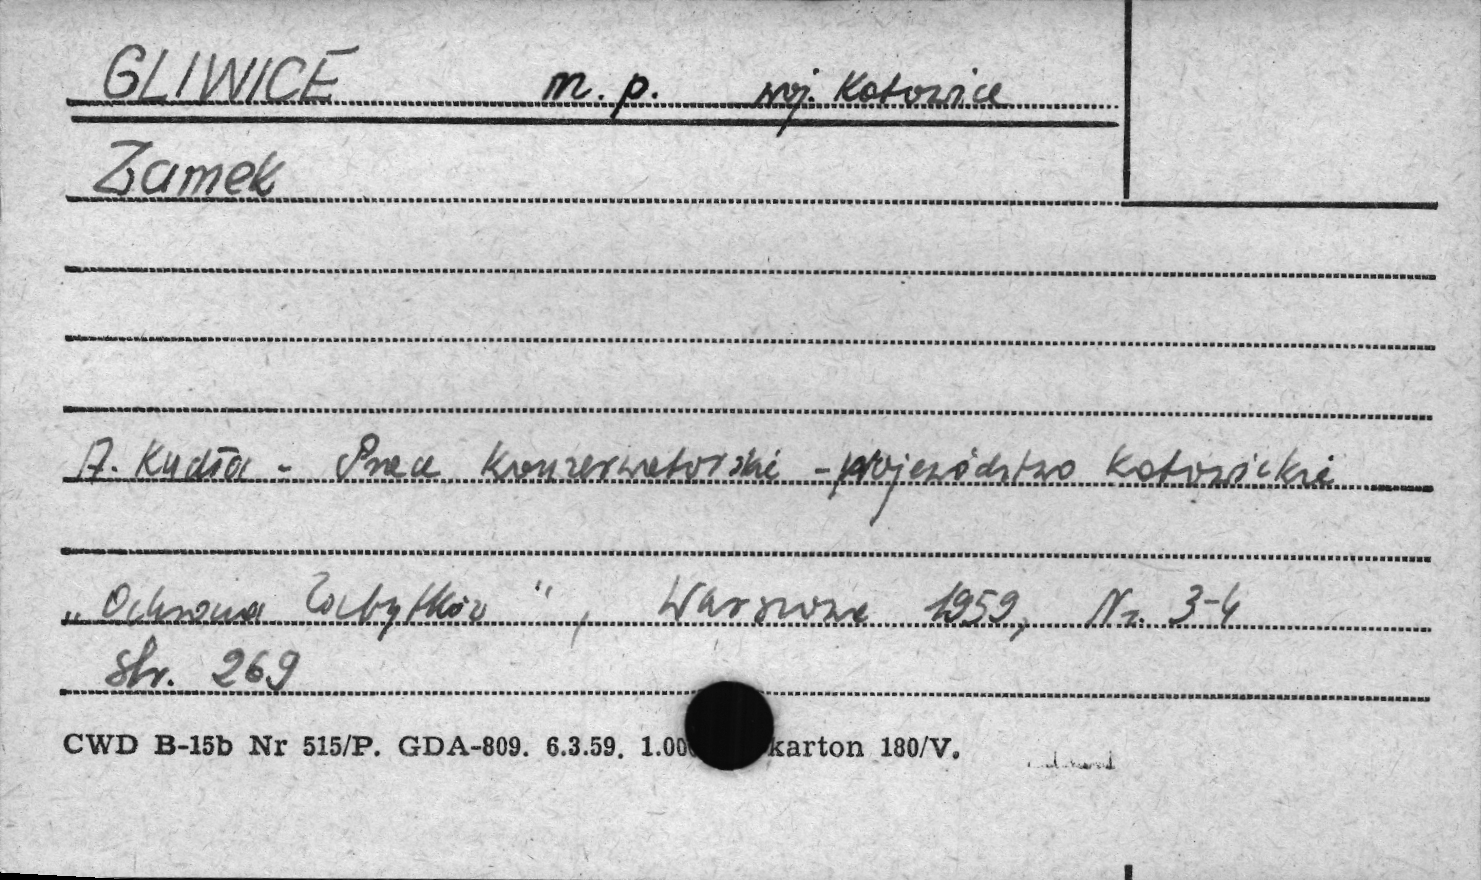 GLIWICE m. p. woj. Katowice
Zamek
A. Kudła - Prace konserwatorskie - województwo katowickie
„Ochrona Zabytków", Warszawa 1959, Nr. 3-4
str. 269
CWD B-15b Nr 515/P. GDA-809. 6.3.59. 1.00 karton 180/V.